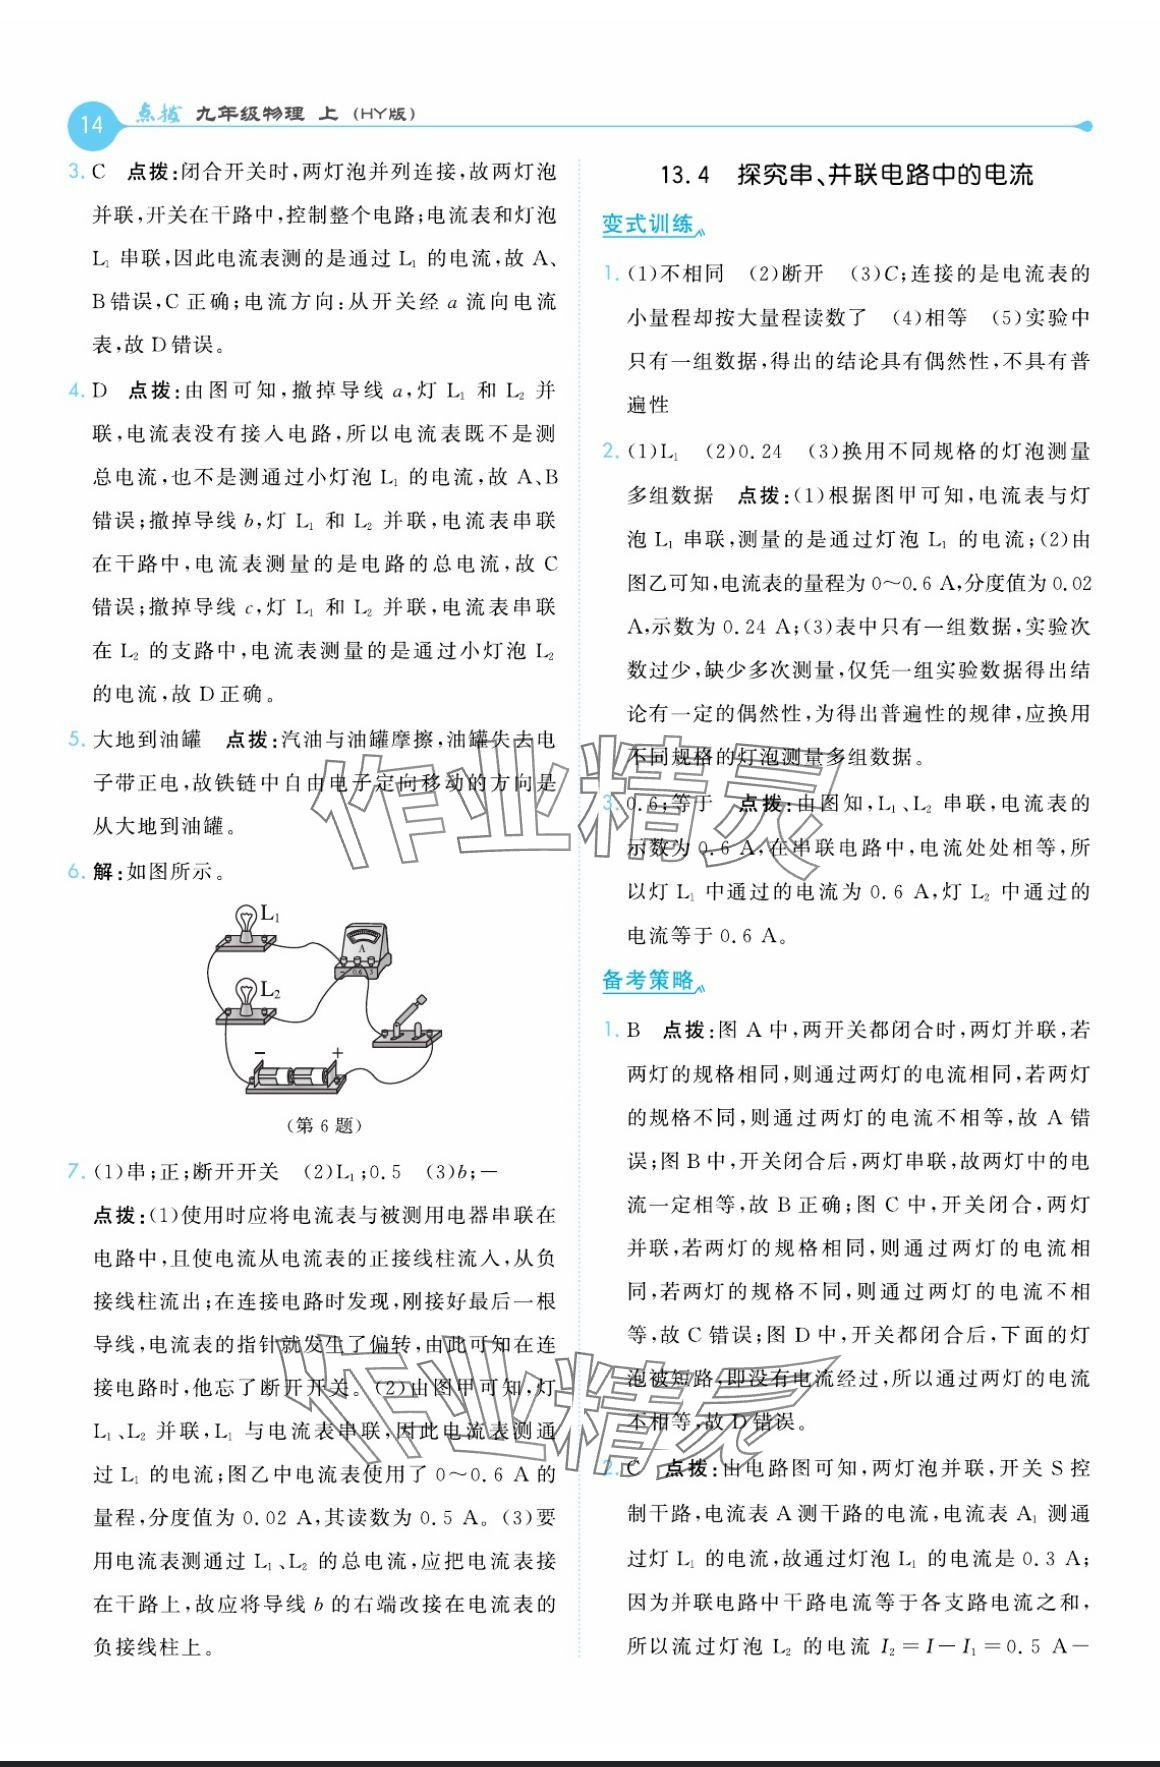 14 点拨 九年级物理 上 (HY版)
3. C 点拨:闭合开关时,两灯泡并列连接,故两灯泡
并联,开关在干路中,控制整个电路;电流表和灯泡
L₁ 串联,因此电流表测的是通过 L₁ 的电流,故 A、
B错误,C 正确;电流方向:从开关经 a 流向电流
表,故 D错误。
4. D 点拨:由图可知,撤掉导线 a,灯 L₁ 和 L₂ 并
联,电流表没有接入电路,所以电流表既不是测
总电流,也不是测通过小灯泡 L₁ 的电流,故 A、B
错误;撤掉导线 b,灯 L₁ 和 L₂ 并联,电流表串联
在干路中,电流表测量的是电路的总电流,故 C
错误;撤掉导线 c,灯 L₁ 和 L₂ 并联,电流表串联
在 L₂ 的支路中,电流表测量的是通过小灯泡 L₂
的电流,故 D正确。
5. 大地到油罐 点拨:汽油与油罐摩擦,油罐失去电
子带正电,故铁链中自由电子定向移动的方向是
从大地到油罐。
6. 解:如图所示。
L₁
A
- 0.6 3
L₂
- +
(第 6 题)
7. (1)串;正;断开开关 (2)L₁;0.5 (3)b;-
点拨:(1)使用时应将电流表与被测用电器串联在
电路中,且使电流从电流表的正接线柱流入,从负
接线柱流出;在连接电路时发现,刚接好最后一根
导线,电流表的指针就发生了偏转,由此可知在连
接电路时,他忘了断开开关。(2)由图甲可知,灯
L₁、L₂ 并联,L₁ 与电流表串联,因此电流表测通
过 L₁ 的电流;图乙中电流表使用了 0～0.6 A 的
量程,分度值为 0.02 A,其读数为 0.5 A。(3)要
用电流表测通过 L₁、L₂ 的总电流,应把电流表接
在干路上,故应将导线 b 的右端改接在电流表的
负接线柱上。
13.4 探究串、并联电路中的电流
变式训练
1. (1)不相同 (2)断开 (3)C;连接的是电流表的
小量程却按大量程读数了 (4)相等 (5)实验中
只有一组数据,得出的结论具有偶然性,不具有普
遍性
2. (1)L₁ (2)0.24 (3)换用不同规格的灯泡测量
多组数据 点拨:(1)根据图甲可知,电流表与灯
泡 L₁ 串联,测量的是通过灯泡 L₁ 的电流;(2)由
图乙可知,电流表的量程为 0～0.6 A,分度值为 0.02
A,示数为 0.24 A;(3)表中只有一组数据,实验次
数过少,缺少多次测量,仅凭一组实验数据得出结
论有一定的偶然性,为得出普遍性的规律,应换用
不同规格的灯泡测量多组数据。
3. 0.6;等于 点拨:由图知,L₁、L₂ 串联,电流表的
示数为 0.6 A,在串联电路中,电流处处相等,所
以灯 L₁ 中通过的电流为 0.6 A,灯 L₂ 中通过的
电流等于 0.6 A。
备考策略
1. B 点拨:图 A 中,两开关都闭合时,两灯并联,若
两灯的规格相同,则通过两灯的电流相同,若两灯
的规格不同,则通过两灯的电流不相等,故 A 错
误;图 B 中,开关闭合后,两灯串联,故两灯中的电
流一定相等,故 B 正确;图 C 中,开关闭合,两灯
并联,若两灯的规格相同,则通过两灯的电流相
同,若两灯的规格不同,则通过两灯的电流不相
等,故 C 错误;图 D 中,开关都闭合后,下面的灯
泡被短路,即没有电流经过,所以通过两灯的电流
不相等,故 D 错误。
2. C 点拨:由电路图可知,两灯泡并联,开关 S 控
制干路,电流表 A 测干路的电流,电流表 A₁ 测通
过灯 L₁ 的电流,故通过灯泡 L₁ 的电流是 0.3 A;
因为并联电路中干路电流等于各支路电流之和,
所以流过灯泡 L₂ 的电流 I₂=I-I₁=0.5 A-
作业精灵
作业精灵